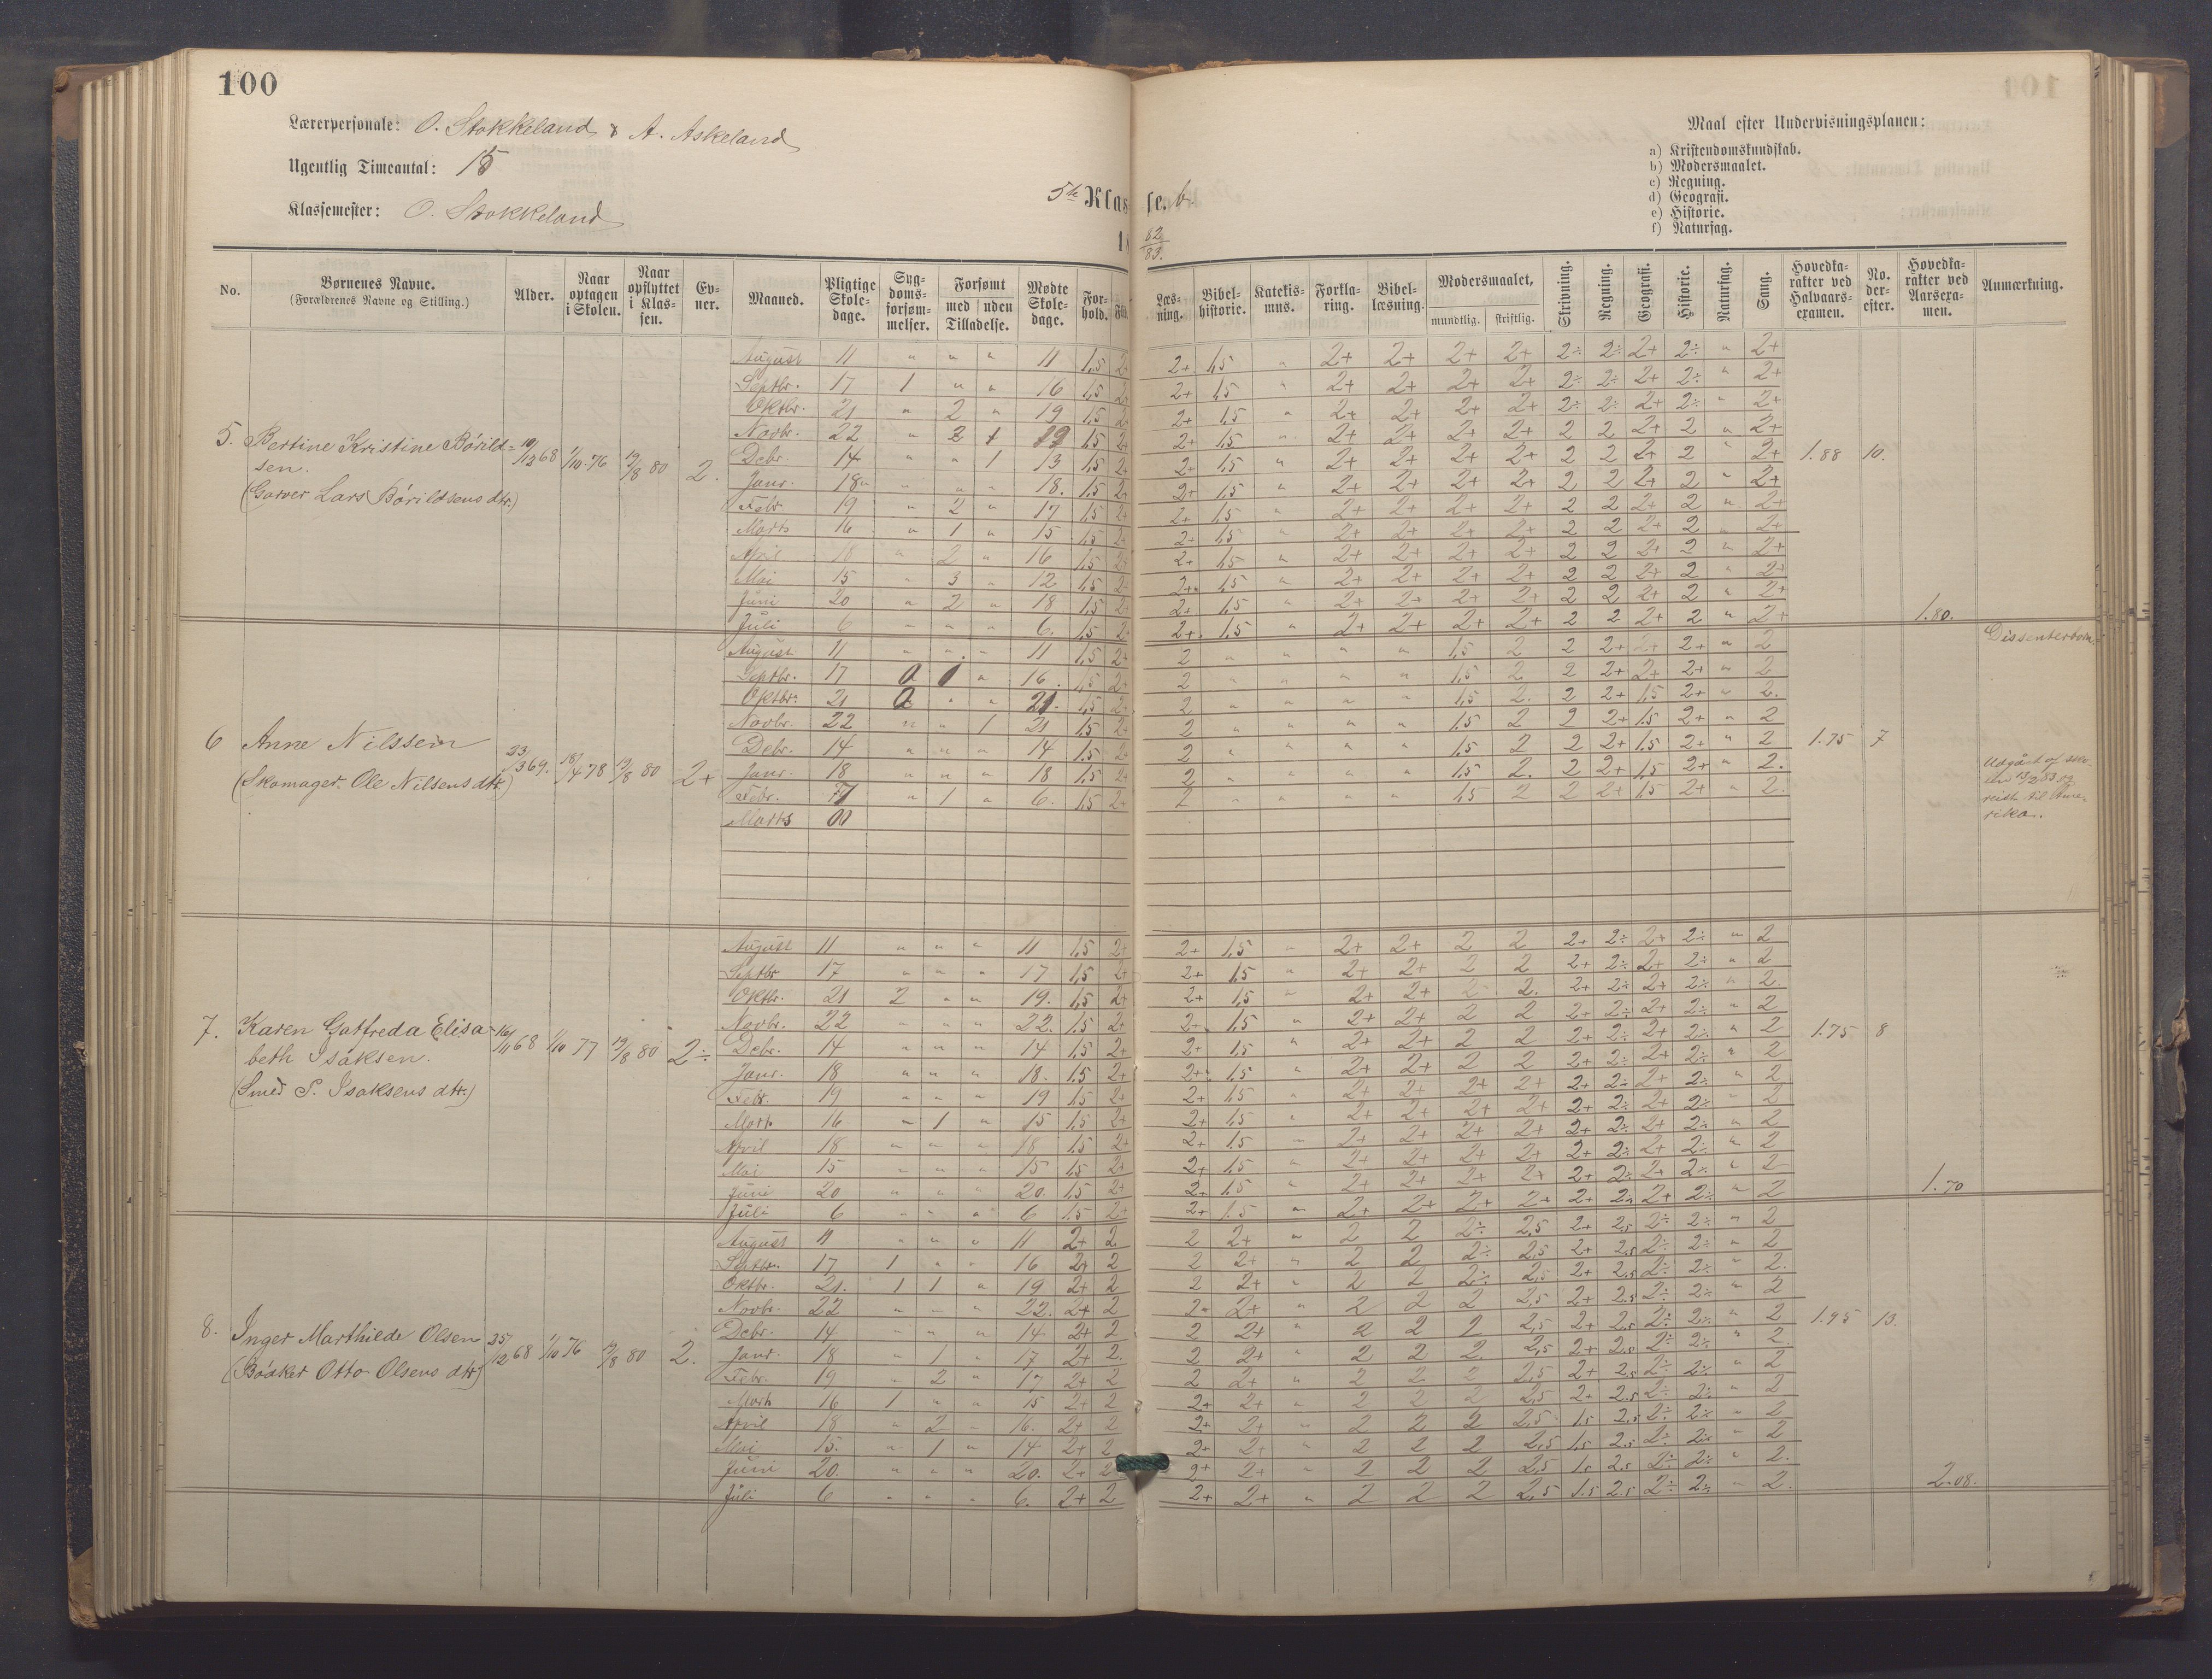 100
Lærerpersonale: O. Stokkeland & A. Askeland
Ugentlig Timeantal: 15
Klassemester: O. Stokkeland
5te Klasse. b.
18 82/83.
Maal efter Undervisningsplanen:
a) Kristendomskundskab.
b) Modersmaalet.
c) Regning.
d) Geografi.
e) Historie.
f) Naturfag.
No. | Børnenes Navne. (Forældrenes Navne og Stilling.) | Alder. | Naar optagen i Skolen. | Naar opflyttet i Klassen. | Evner. | Maaned. | Pligtige Skoledage. | Sygdomsforsømmelser. | Forsømt med uden Tilladelse. | Mødte Skoledage. | Forhold. | Flid. | Læsning. | Bibelhistorie. | Katekismus. | Forklaring. | Bibellæsning. | Modersmaalet, mundtlig. skriftlig. | Skrivning. | Regning. | Geografi. | Historie. | Naturfag. | Sang. | Hovedkarakter ved Halvaarsexamen. | No. derefter. | Hovedkarakter ved Aarsexamen. | Anmærkning.
5. Bertine Kristine Børildsen.
(Garver Lars Børildsens dtr.)
10/12 68 1/10 76 19/8 80 2. 1.88 10. 1.80.
August 11 " " " 11 1,5 2+ 2+ 1,5 " 2+ 2+ 2+ 2+ 2÷ 2÷ 2+ 2÷ " 2+
Septbr. 17 1 " " 16 1,5 2+ 2+ 1,5 " 2+ 2+ 2+ 2+ 2÷ 2÷ 2+ 2÷ " 2+
Oktbr. 21 " 2 " 19 1,5 2+ 2+ 1,5 " 2+ 2+ 2+ 2+ 2÷ 2÷ 2+ 2÷ " 2+
Novbr. 22 " 2 1 19 1,5 2+ 2+ 1,5 " 2+ 2+ 2+ 2+ 2 2 2+ 2 " 2+
Debr. 14 " " 1 13 1,5 2+ 2+ 1,5 " 2+ 2+ 2+ 2+ 2 2 2+ 2 " 2+
Janr. 18 " " " 18. 1,5 2+ 2+ 1,5 " 2+ 2+ 2+ 2+ 2 2 2+ 2 " 2+
Febr. 19 " 2 " 17 1,5 2+ 2+ 1,5 " 2+ 2+ 2+ 2+ 2 2 2+ 2 " 2+
Marts 16 " 1 " 15 1,5 2+ 2+ 1,5 " 2+ 2+ 2+ 2+ 2 2 2+ 2 " 2+
April 18 " 2 " 16 1,5 2+ 2+ 1,5 " 2+ 2+ 2+ 2+ 2 2 2+ 2 " 2+
Mai 15 " 3 " 12 1,5 2+ 2+ 1,5 " 2+ 2+ 2+ 2+ 2 2 2+ 2 " 2+
Juni 20 " 2 " 18 1,5 2+ 2+ 1,5 " 2+ 2+ 2+ 2+ 2 2 2+ 2 " 2+
Juli 6 " " " 6. 1,5 2+ 2+ 1,5 " 2+ 2+ 2+ 2+ 2 2 2+ 2 " 2+
6 Anne Nilssen
(Skomager Ole Nilsens dtr.)
23/3 69. 18/4 78 19/8 80 2+ 1.75 7
Dissenterbarn.
Udgået af skolen 13/2 83 og
reist til Amerika.
August 11 " " " 11 1,5 2+ 2 " " " " 1,5 2 2 2+ 2+ 2+ " 2
Septbr. 17 0 1 " 16. 1,5 2+ 2 " " " " 1,5 2 2 2+ 2+ 2+ " 2
Oktbr. 21 0 " " 21. 1,5 2+ 2 " " " " 1,5 2. 2 2+ 1,5 2+ " 2.
Novbr. 22 " " 1 21 1,5 2+ 2 " " " " 1,5 2 2 2+ 1,5 2+ " 2
Debr. 14 " " " 14 1,5 2+ 2 " " " " 1,5 2 2 2+ 1,5 2+ " 2
Janr. 18 " " " 18 1,5 2+ 2 " " " " 1,5 2. 2 2+ 1,5 2+ " 2.
Febr. 7 " 1 " 6. 1,5 2+ 2 " " " " 1,5 2 2 2+ 1,5 2+ " 2.
Marts 00
7. Karen Gatfreda Elisabeth Isaksen.
(Smed P. Isaksens dtr.)
16/11 68 1/10 77 19/8 80 2÷ 1.75 8 1.70
August 11 " " " 11 1,5 2+ 2+ 1,5 " 2+ 2+ 2 2 2+ 2÷ 2+ 2÷ " 2
Septbr. 17 " " " 17 1,5 2+ 2+ 1,5 " 2+ 2+ 2 2 2+ 2÷ 2+ 2÷ " 2
Oktbr. 21 2 " " 19. 1,5 2+ 2+ 1,5 " 2+ 2+ 2 2. 2+ 2÷ 2+ 2÷ " 2.
Novbr. 22 " " " 22. 1,5 2+ 2+ 1,5 " 2+ 2+ 2 2 2+ 2÷ 2+ 2÷ " 2
Debr. 14 " " " 14 1,5 2+ 2+ 1,5 " 2+ 2+ 2 2 2+ 2÷ 2+ 2÷ " 2
Janr. 18 " " " 18. 1,5 2+ 2+ 1,5 " 2+ 2+ 2 2 2+ 2÷ 2+ 2÷ " 2
Febr. 19 " " " 19 1,5 2+ 2+ 1,5 " 2+ 2+ 2+ 2+ 2+ 2÷ 2+ 2÷ " 2
Marts 16 " 1 " 15 1,5 2+ 2+ 1,5 " 2+ 2+ 2+ 2+ 2+ 2÷ 2+ 2÷ " 2
April 18 " " " 18 1,5 2+ 2+ 1,5 " 2+ 2+ 2+ 2+ 2+ 2÷ 2+ 2÷ " 2
Mai 15 " " " 15 1,5 2+ 2+ 1,5 " 2+ 2+ 2+ 2+ 2+ 2÷ 2+ 2÷ " 2
Juni 20 " " " 20. 1,5 2+ 2+ 1,5 " 2+ 2+ 2+ 2+ 2+ 2÷ 2+ 2÷ " 2
Juli 6 " " " 6 1,5 2+ 2+ 1.5 " 2+ 2+ 2+ 2+ 2+ 2÷ 2+ 2÷ " 2
8. Inger Marthilde Olsen
(Bødker Otto Olsens dtr.)
25/12 68 1/10 76 19/8 80 2. 1.95 13. 2.08.
August 11 " " " 11 2+ 2 2 2+ " 2 2 2÷ 2,5 2+ 2,5 2÷ 2÷ " 2
Septbr. 17 1 " " 16 2+ 2 2 2+ " 2 2 2÷ 2,5 2+ 2,5 2÷ 2÷ " 2
Oktbr. 21. 1 1 " 19 2+ 2 2 2+ " 2 2 2÷ 2,5 2+ 2,5 2÷ 2÷ " 2.
Novbr. 22 " " " 22. 2+ 2 2 2+ " 2 2 2 2,5 2+ 2,5 2÷ 2÷ " 2
Debr. 14 " " " 14. 2+ 2 2 2+ " 2 2 2 2,5 2+ 2,5 2÷ 2÷ " 2
Janr. 18 " 1 " 17 2+ 2. 2 2+ " 2 2 2 2,5 2+ 2,5 2÷ 2÷ " 2
Febr. 19 " 2 " 17 2+ 2 2 2+ " 2 2 2 2,5 2+ 2,5 2÷ 2÷ " 2
Marts 16 1 " " 15 2+ 2 2+ 2+ " 2 2 2 2,5 2+ 2,5 2÷ 2÷ " 2
April 18 " 2 " 16. 2+ 2 2+ 2+ " 2 2 2 2,5 1,5 2,5 2÷ 2÷ " 2
Mai 15. " 1 " 14 2+ 2 2+ 2+ " 2 2 2 2,5 1,5 2,5 2÷ 2÷ " 2
Juni 20. " " " 20. 2+ 2 2+ 2+ " 2 2 2 2,5 1,5 2,5 2÷ 2÷ " 2.
Juli 6 " " " 6. 2+ 2 2+ 2+ " 2 2 2 2,5 1.5 2,5 2÷ 2÷ " 2.